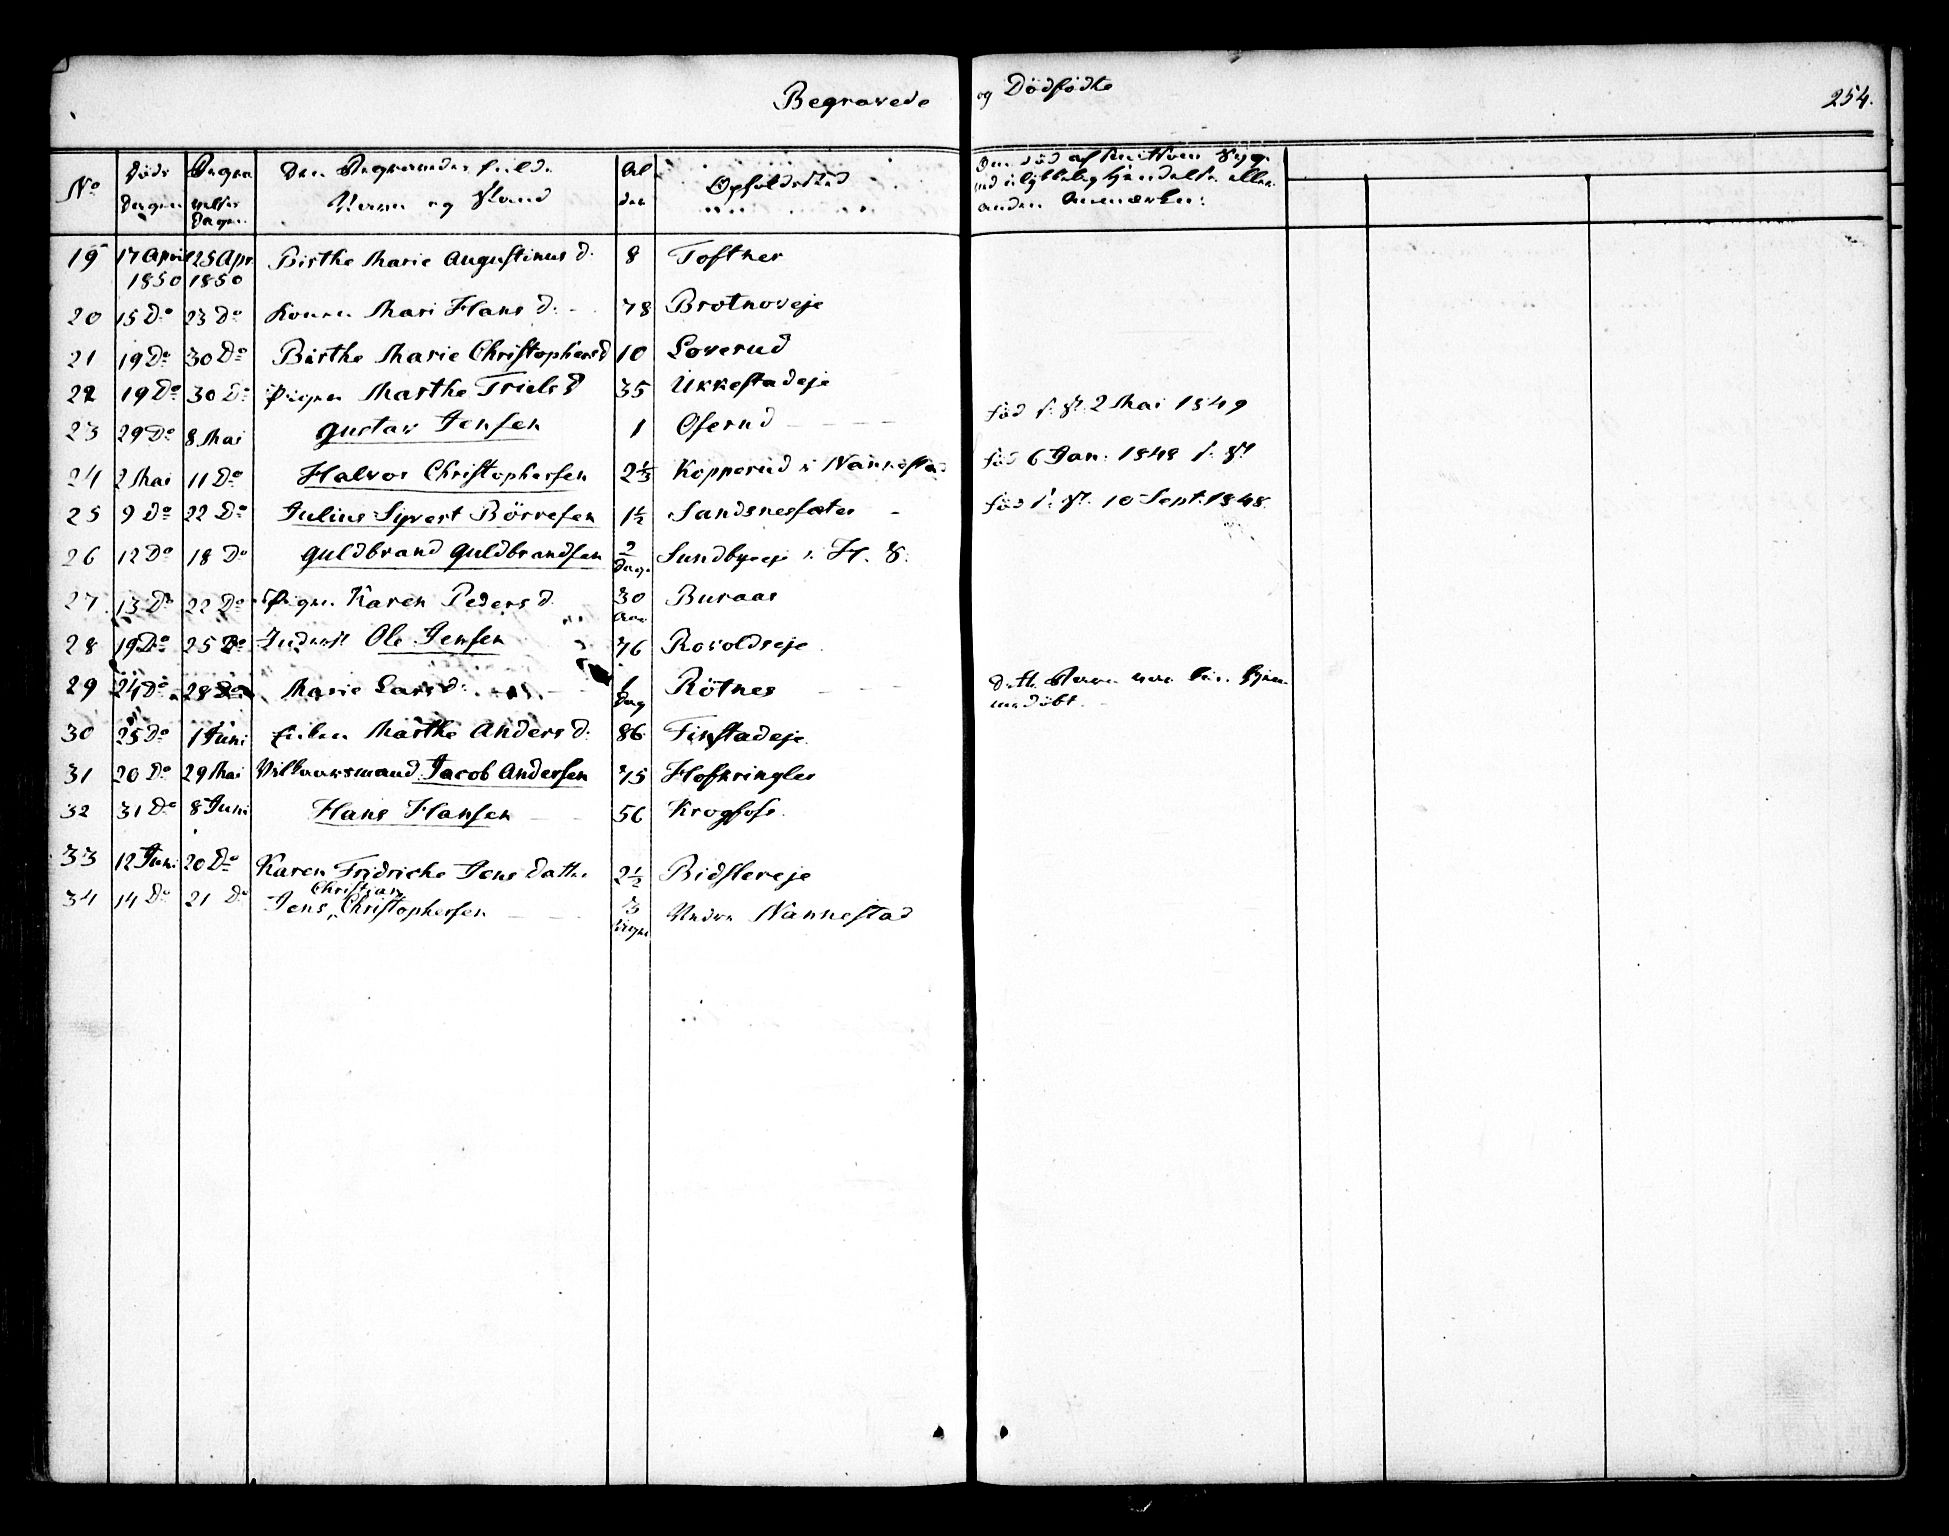 Begravede og Dödfödte 254.
No Döds Dagen Begravelses Dagen Den Begravedes fulde Navn og Stand Alder Opholdssted Om död af smitsom Syg ved ulykkelig Hændelse eller anden Anmærkn:
19 17 April 1850 25 Apr 1850 Birthe Marie Augustinus d. 8 Toftner
20 15 Do 23 Do Konen Mari Hans d. 78 Brotnoveje
21 19 Do 30 Do Birthe Marie Christophersd 10 Loverud
22 19 Do 30 Do Pigen Marthe Triels d 35 Ukkestadeje
23 29 Do 8 Mai Gustav Jensen 1 Oserud föd 2 Mai 1849
24 2 Mai 11 Do Halvor Christophersen 2 1/3 Kopperud i Nannestad föd 6 Jan: 1848
25 9 Do 22 Do Julius Syvert Börresen 1 1/2 Sandsnesseter föd 10 Sept. 1848.
26 12 Do 18 Do Guldbrand Guldbrandsen 2 Dage Sundbyeje i H. S.
27 13 Do 22 Do Pigen Karen Peders d. 30 Aar Buraas
28 19 Do 25 Do Inderst Ole Jensen 76 Rovoldseje
29 24 Do 28 Do Marie Lars d. 1 Dag Rötnes Dette Barn var kun hjemmedöbt.
30 25 Do 1 Juni Enken Marthe Anders d. 86 Finstadeje
31 20 Do 29 Mai Vilkaarsmand Jacob Andersen 75 Hofkringler
32 31 Do 8 Juni Hans Hansen 56 Krogfoss.
33 12 Juni 20 Do Karen Fridriche Jens Datter 2 1/2 Bidslereje
Christian
34 14 Do 21 Do Jens Christophersen 3 Uger Nedre Nannestad